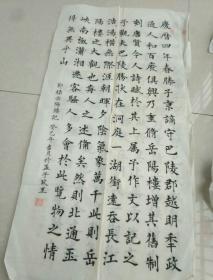 慶曆四年春滕子京謫守巴陵郡越明年政
通人和百廢俱興乃重脩岳陽樓增其舊制
刻唐賢今人詩賦於其上屬予作文以記之
予觀夫巴陵勝狀在洞庭一湖銜遠吞長江
浩湯橫無際涯朝暉夕陰氣象萬千此則岳
陽樓之大觀也前人之述備矣然則北通巫
峽南極瀟湘遷客騷人多會於此覽物之情
得無異乎
節錄岳陽樓記 癸巳年